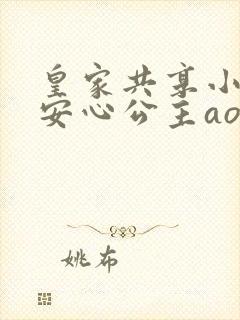 皇家共享小
安心公主ao
姚布